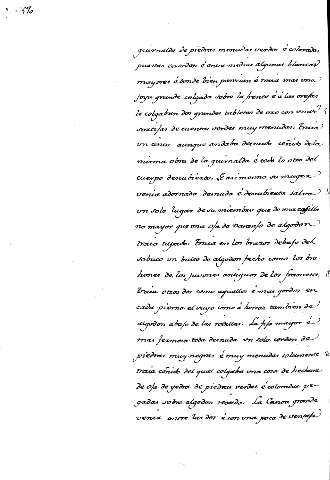 guirnalda de piedras menudas verdes é coloradas
puestas en orden é entre medias algunas blancas
mayores é donde bien parecian é traia mas una
joya grande colgada sobre la frente é á las orejas
le colgaban dos grandes tabletas de oro con unas
sartitas de cuentas verdes muy menudas. Traia
un cinto aunque andaba desnudo ceñido de la
misma obra de la guirnalda é todo lo otro del
cuerpo descubierto. E asi mismo su muger
venia adornada desnuda é descubierta salvo
un solo lugar de su miembro que de
no mayor que una oja de naranjo de algodon
traia tapado. Traia en los brazos debajo del
sobaco un bulto de algodon fecho como los bra
hones de los jubones antiguos de los franceses.
Traia otros dos como aquellos é mas gordos en
cada pierna el suyo como á horcas tambien de
algodon abajo de las rodillas. La fija mayor é
mas fermosa toda desnuda un solo cordon de
piedras muy negras é muy menudas solamente
traia ceñido del qual colgaba una cosa de hechura
de oja de yedra de piedras verdes é coloradas pe
gadas sobre algodon texido. La Canoa grande
venia entre las dos é con una poca de ventaja